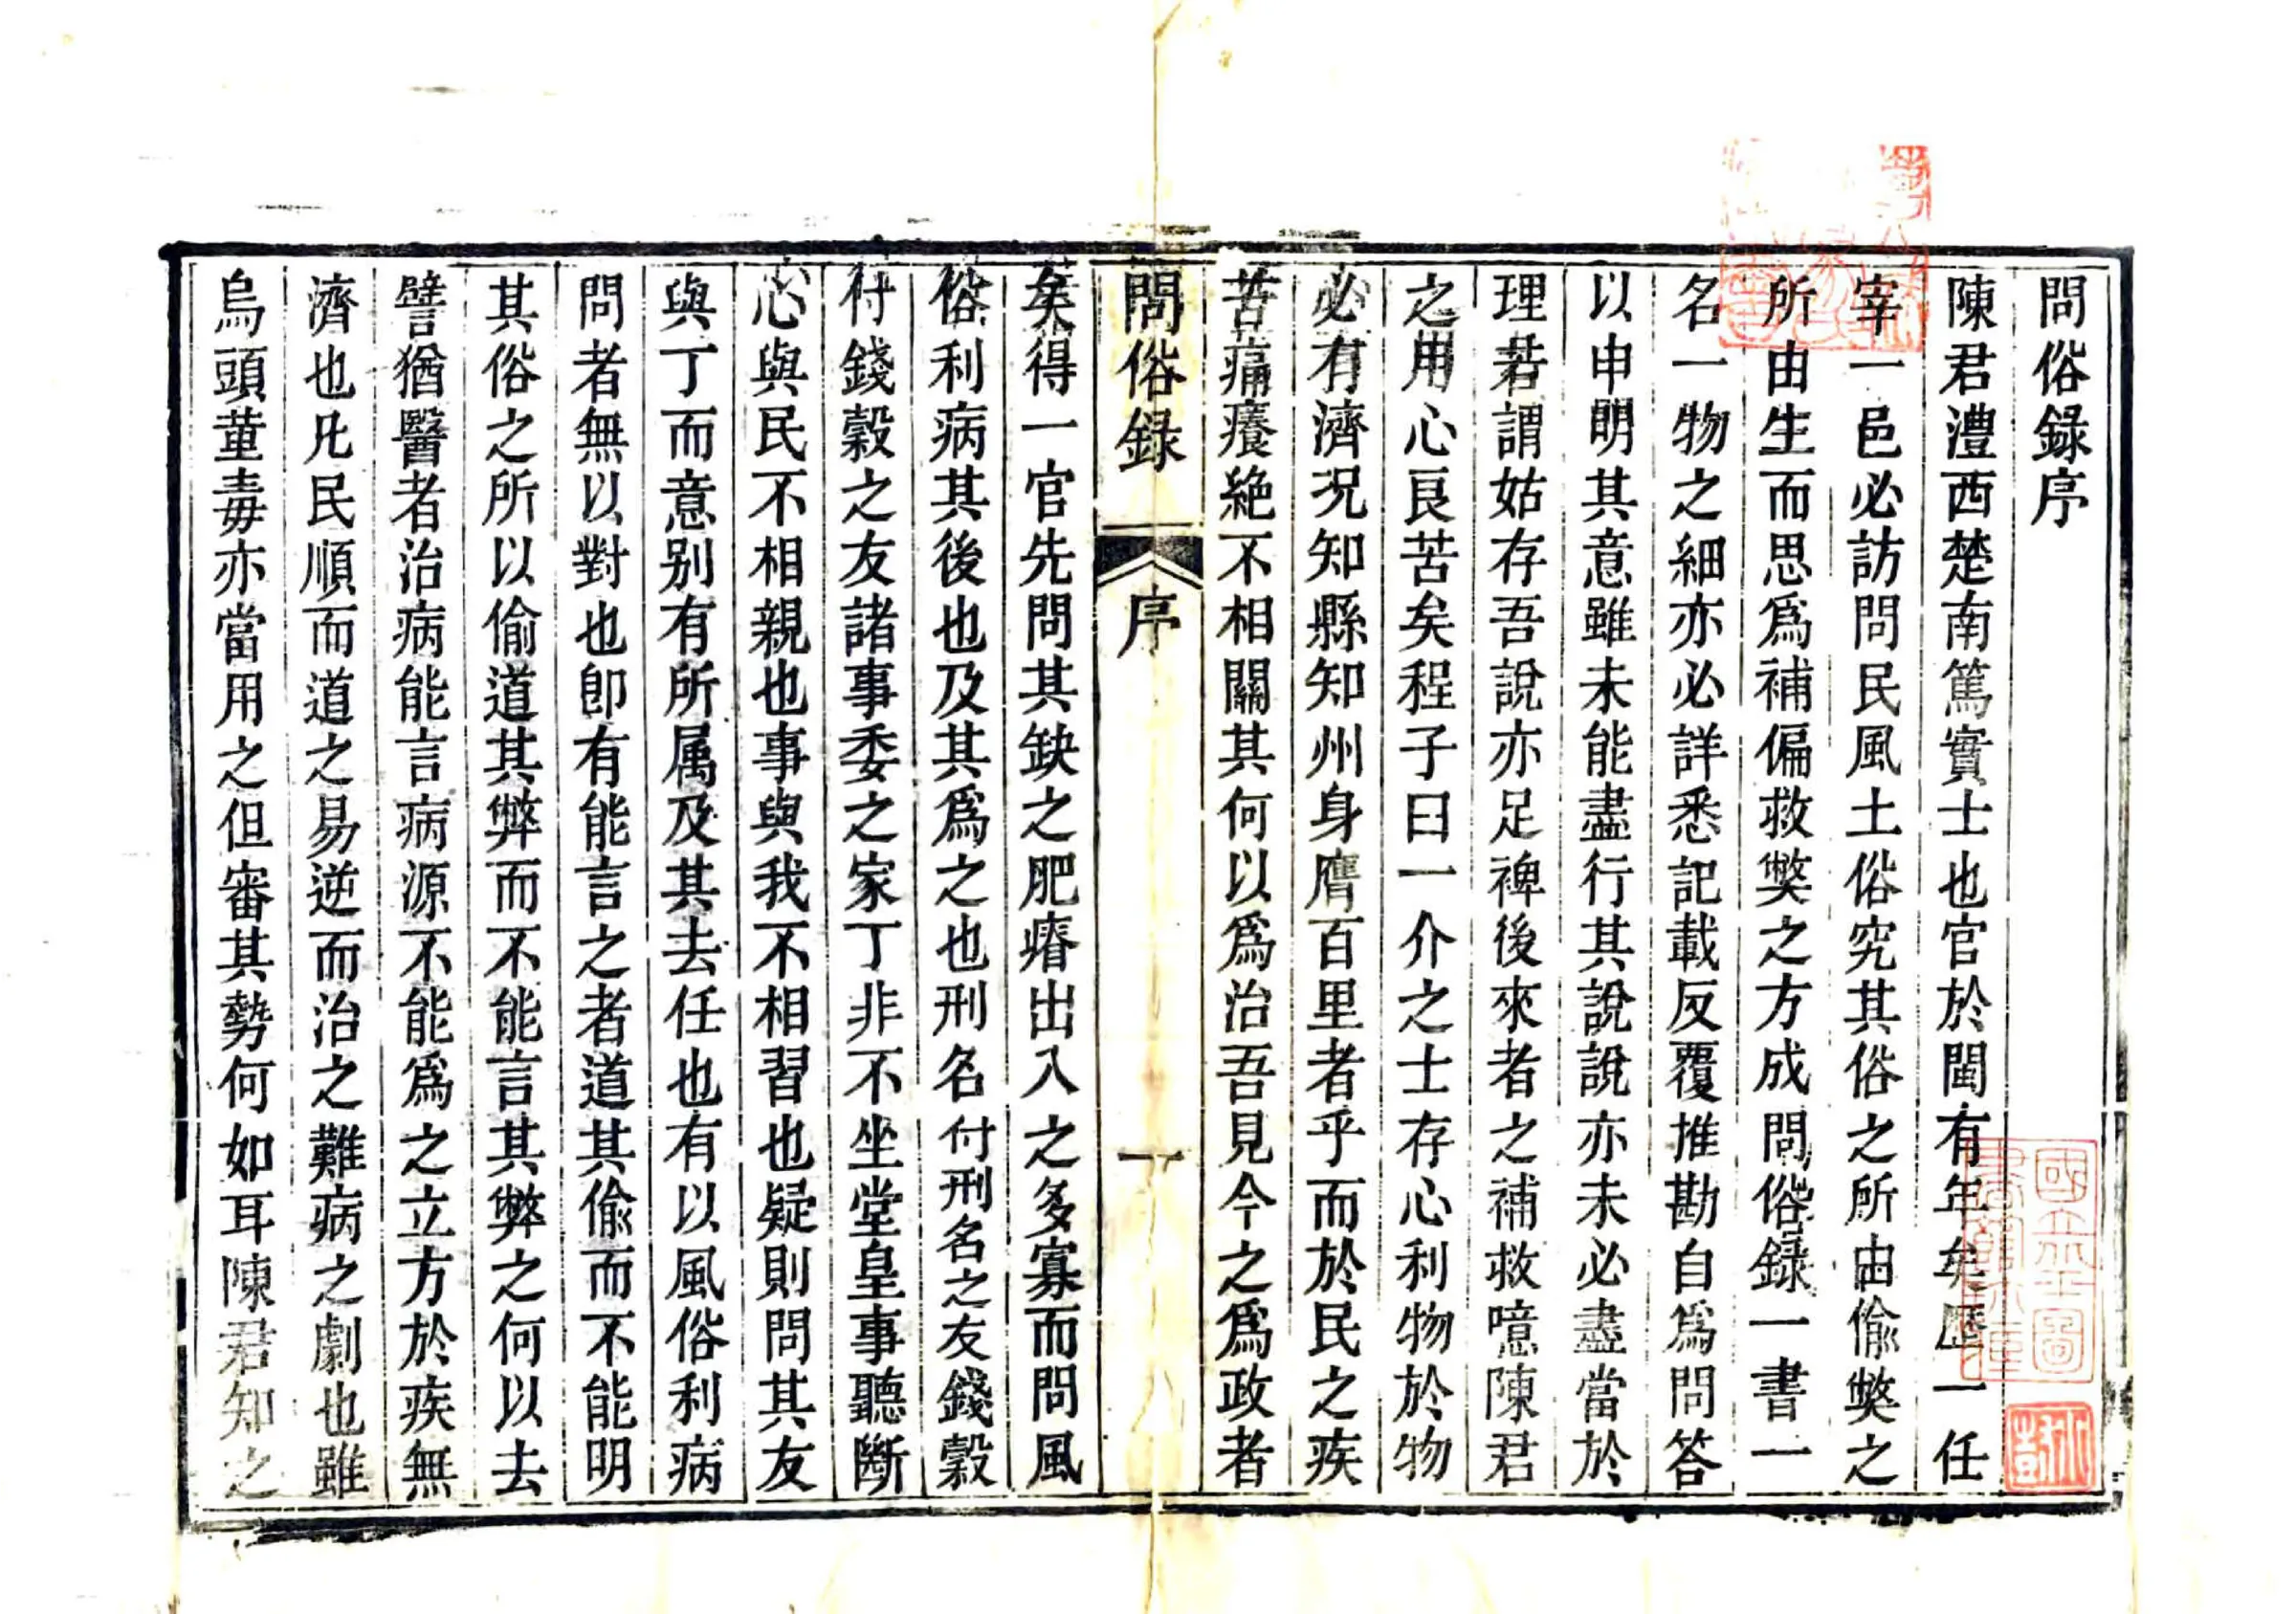 問俗録序
陳君澧西楚南篤實士也官於閩有年矣歷一任
宰一邑必訪問民風土俗究其俗之所由偷獘之
所由生而思為補偏救獘之方成問俗録一書一
名一物之細亦必詳悉記載反覆推勘自為問答
以申明其意雖未能盡行其說說亦未必盡當於
理若謂姑存吾說亦足裨後來者之補救噫陳君
之用心良苦矣程子曰一介之士存心利物於物
必有濟況知縣知州身膺百里者乎而於民之疾
苦痛癢絶不相關其何以爲治吾見今之爲政者
問俗録
序
一
矣得一官先問其缺之肥瘠出入之多寡而問風
俗利病其後也及其爲之也刑名付刑名之友錢穀
付錢穀之友諸事委之家丁非不坐堂皇事聽斷
心與民不相親也事與我不相習也疑則問其友
與丁而意别有所属及其去任也有以風俗利病
問者無以對也即有能言之者道其偷而不能明
其俗之所以偷道其弊而不能言其弊之何以去
譬猶醫者治病能言病源不能爲之立方於疾無
濟也凡民順而道之易逆而治之難病之劇也雖
烏頭堇毒亦當用之但審其勢何如耳陳君知之
國立北平圖
書館珍藏